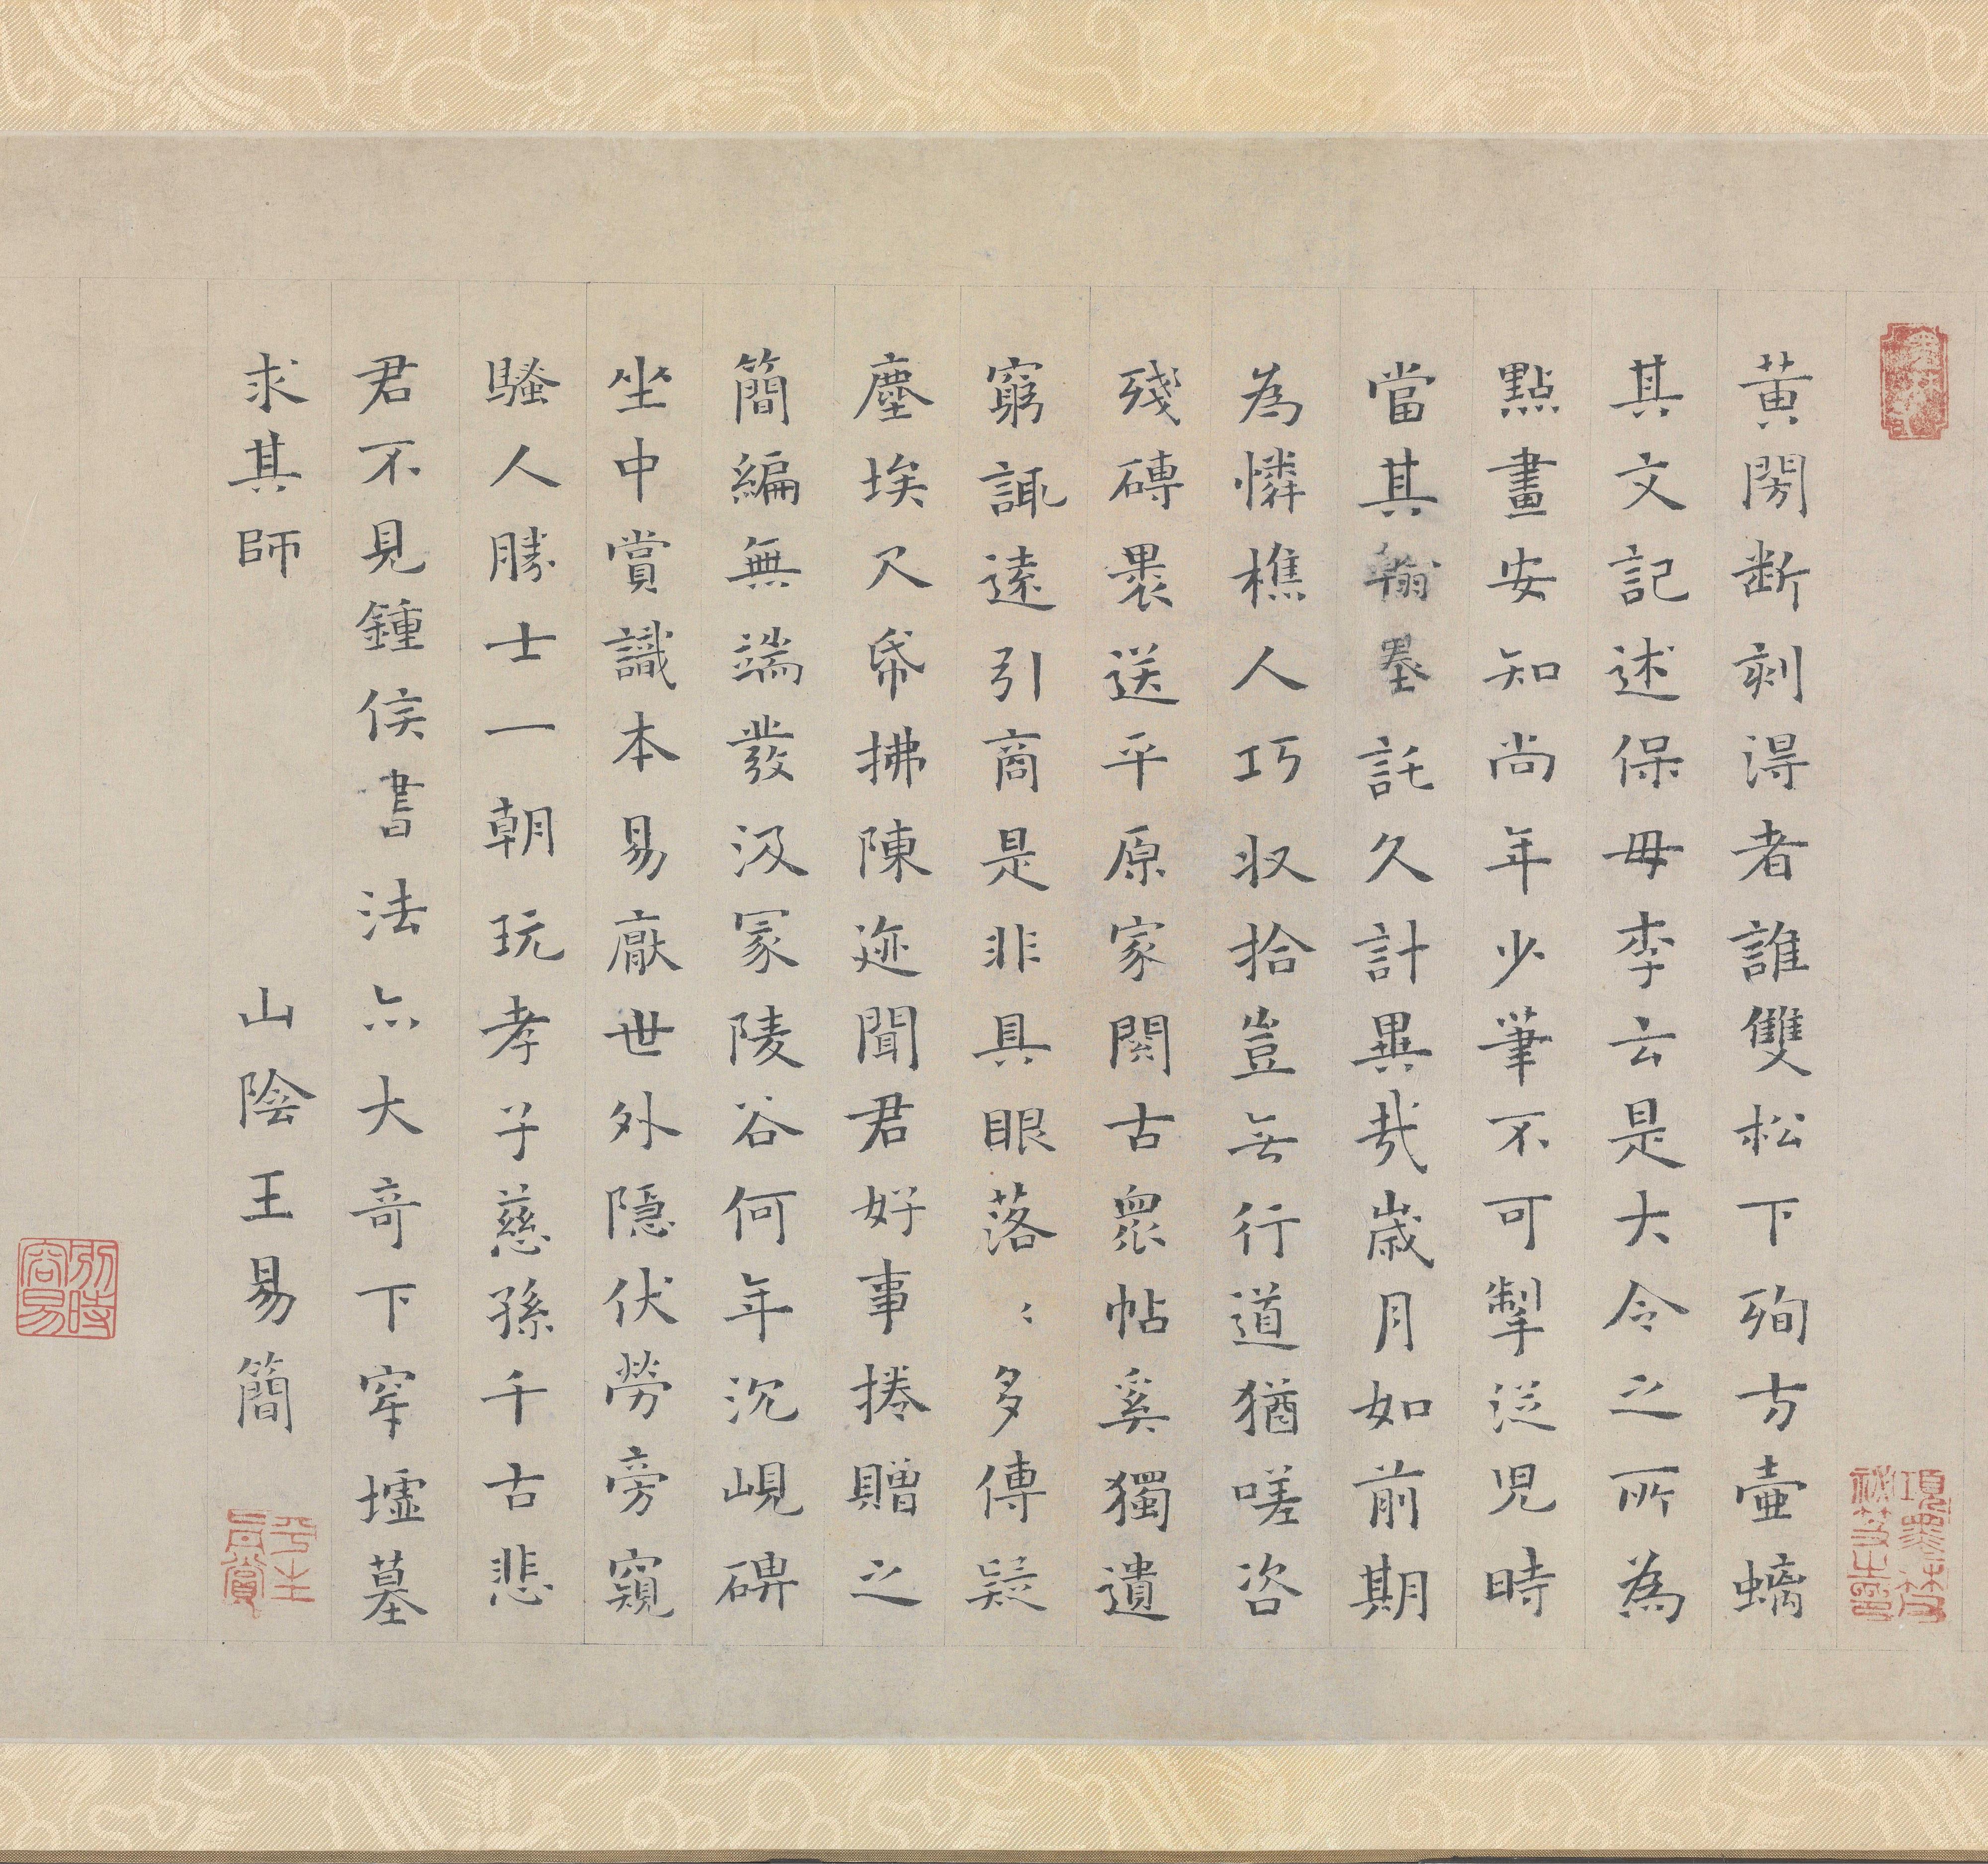 黄閍断刻淂者誰雙松下殉方壷螭
其文記述保母李云是大令之所為
點畫安知尚年少筆不可掣從児時
當其翰墨託久計異哉歲月如前期
為憐樵人巧収拾豈無行道猶嗟咨
殘磚褁送平原家閟古衆帖奚獨遺
窮諏遠引商是非具眼落〻多傳疑
塵埃尺帋拂陳迹聞君好事捲贈之
簡編無端發汲冢陵谷何年沉峴碑
坐中賞識本易厭世外隱伏勞旁窺
騷人勝士一朝玩孝子慈孫千古悲
君不見鍾侯書法亦大奇下穿墟墓
求其師
山陰王易簡